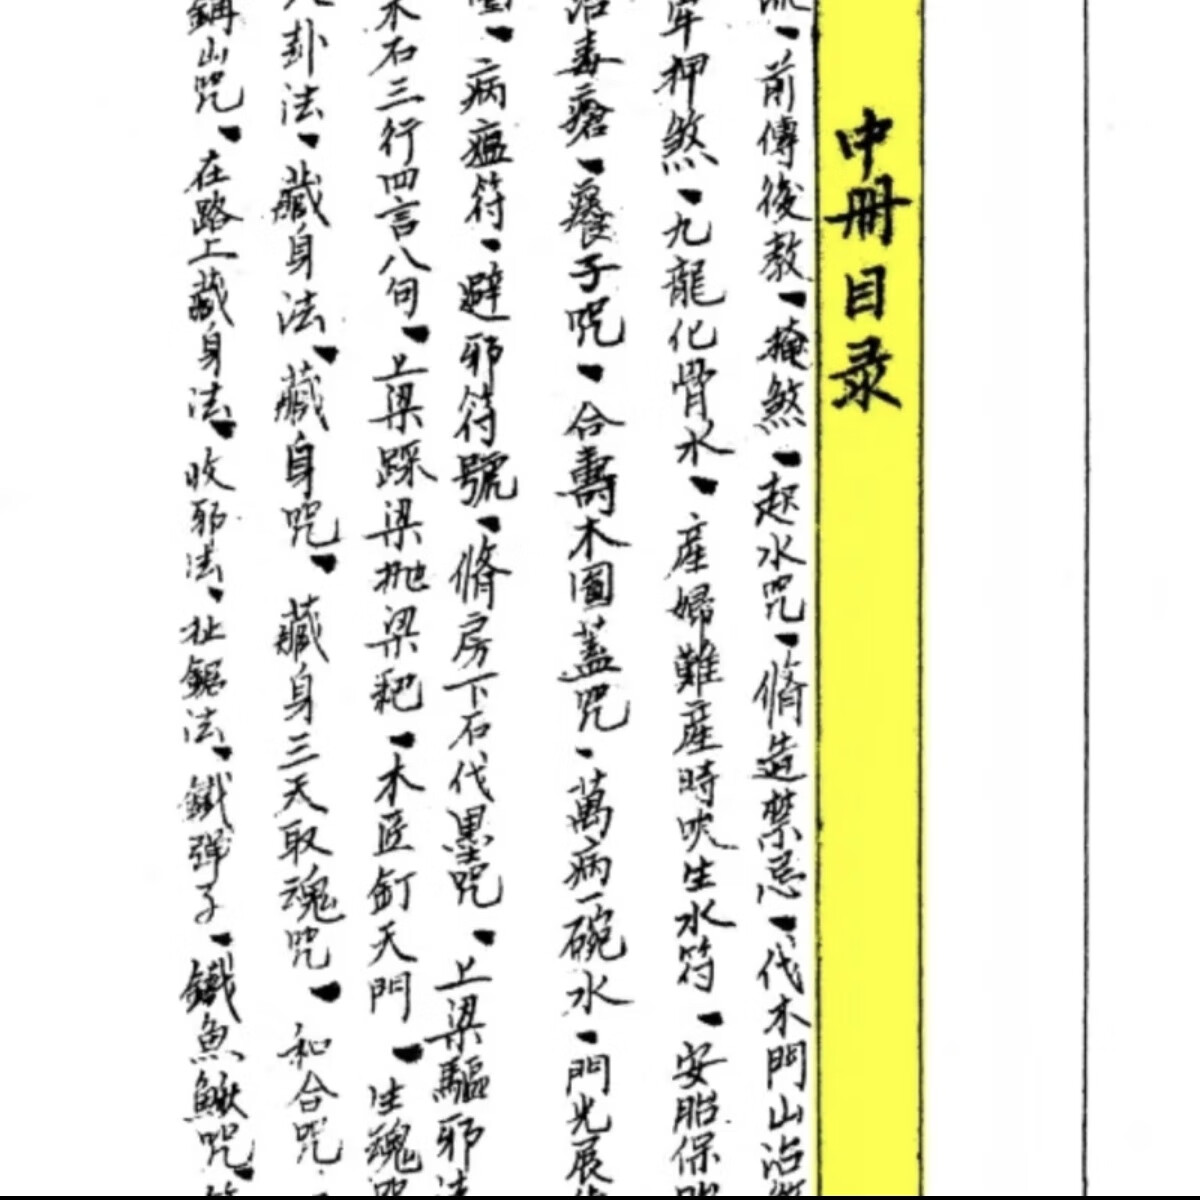 中册目录
、前傳後教、掩煞、起水咒、脩造禁忌、伐木門山治
押煞、九龍化骨水、產婦難產時吹生水符、安胎保
治毒瘡、癢子咒、合壽木圓蓋咒、萬病一碗水、門光展
、病瘟符、避邪符號、脩房下石伐墨咒、上梁驅邪法
木石三行四言八句、上梁踩梁抛梁粑、木匠釘天門、生魂咒
八卦法、藏身法、藏身咒、藏身三天取魂咒、和合咒、
山咒、在路上藏身法、收邪法、扯鋸法、鐵彈子、鐵魚鰍咒、